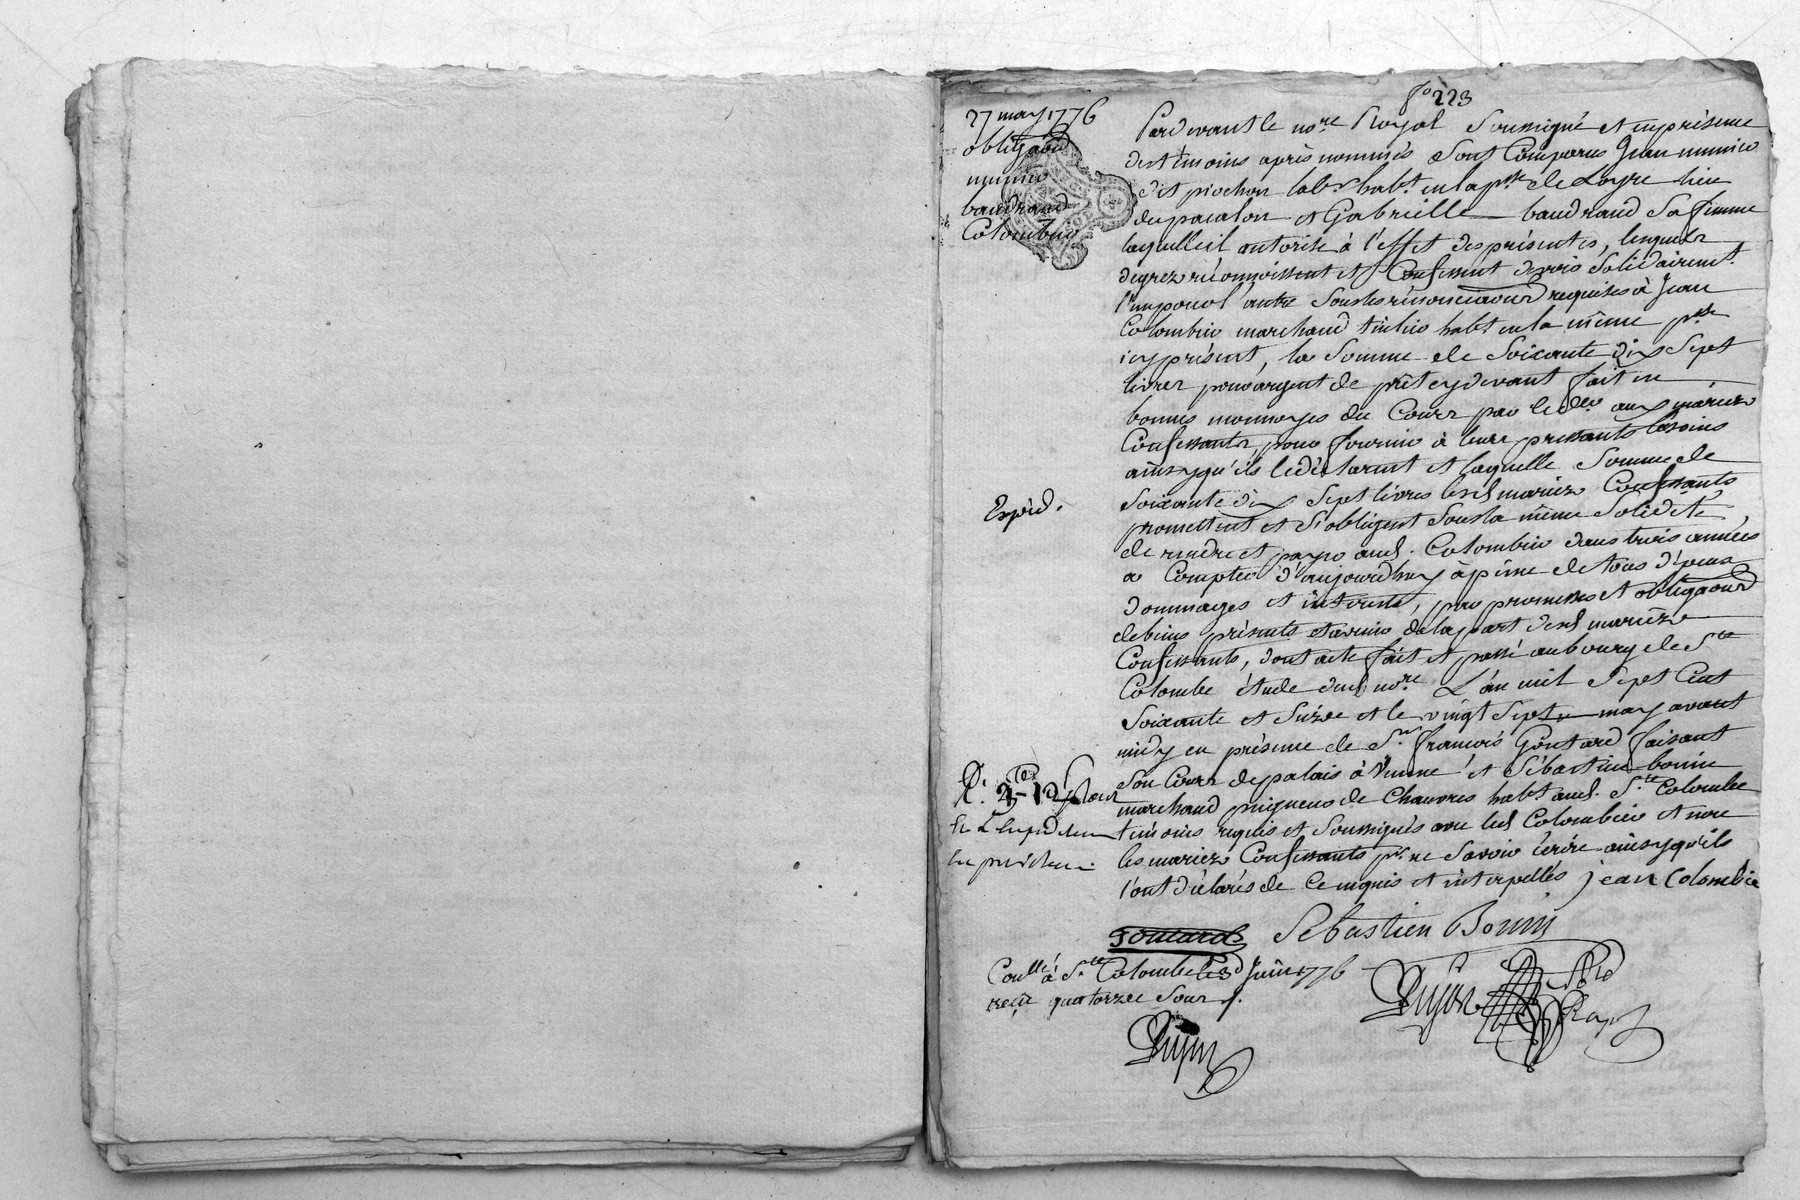 fo 223
27 may 1776
obligaon
munier
baudrand
Colombier
Pardevant le nore Royal Soussigné et en présence
des témoins après nommés Sont Comparus Jean munier
dit piochon labr habt en la psse de Loyre lieu
du pacalon et Gabrielle baudrand Sa femme
laquelle il autorise à l'effet des présentes, lesquels
de grez reconnoissent et Confessent devoir Solidairemt
l'un pour l'autre Sous les rénonciaons requises à Jean
Colombier marchand habt en la même psse
icy présent, la Somme de Soixante dix Sept
livres pour argent de prêt cy devant fait en
bonnes monnoyes du Cours par led. aux mariez
Confessants, pour fournir à leurs pressants besoins
ainsy qu'ils le déclarent et laquelle Somme de
Soixante dix Sept livres lesd mariez Confessants
Expéd.
promettent et S'obligent Sous la même Solidité
de rendre et payer aud. Colombier dans trois années
a Compter d'aujourdhuy à peine de tous dépens
dommages et intérests, par promesses et obligaons
de biens présents et avenir de la part desd mariez
Confessants, dont acte fait et passé au bourg de Ste
Colombe étude dud nore L'an mil Sept Cent
Soixante et Seize et le vingt Sept may avant
midy en présence de Sr françois Gontard faisant
Son Cours de palais à Vienne et Sébastien bonin
marchand peigneur de Chanvres habt aud. Ste Colombe
témoins requis et Soussignés avec led Colombier et non
les mariez Confessants pr ne Savoir écrire ainsy qu'ils
l'ont déclarés de Ce enquis et interpellés jean Colombier
Gontard Sébastien Bonin
Conllé à Ste Colombe le 3 Juin 1776
reçu quatorze Sous
Dujon nre
Royal
Dujon